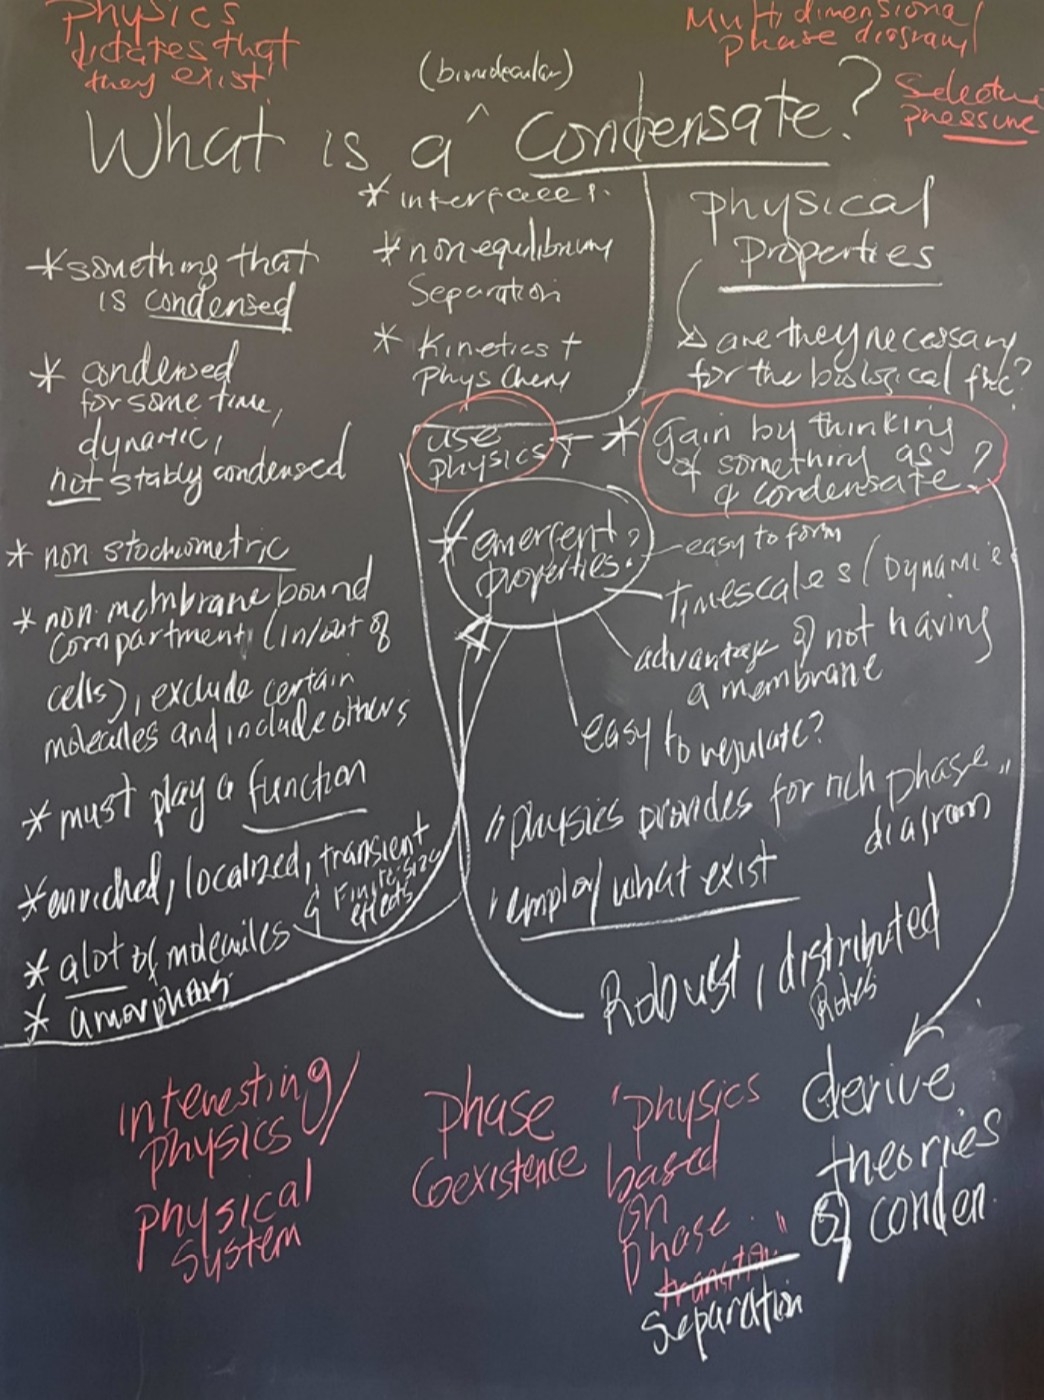 Physics
dictates that
they exist!
Multidimensional
phase diagram
Selection
pressure
(biomolecular)
What is a ^ Condensate?
* something that
is condensed
* condensed
for some time,
dynamic,
not stably condensed
* non stochiometric
* non-membrane bound
compartment, (in/out of
cells), exclude certain
molecules and include others
* must play a function
* enriched, localized, transient
& Finite size
effects
* alot of molecules
* amorphous
* interfaces.
* nonequilibrium
Separation
* Kinetics +
Phys Chem
Physical
Properties
are they necessary
for the biological fnc?
use
physics
* Gain by thinking
of something as
a condensate?
* emergent
properties?
easy to form
Timescales (Dynamic
advantage of not having
a membrane
easy to regulate?
"Physics provides for rich phase"
diagram
'employ what exist
Robust, distributed
Roles
derive
theories
of conden.
Interesting/
physics
physical
system
phase
Coexistence
"physics
based
on
phase"
transition
Separation